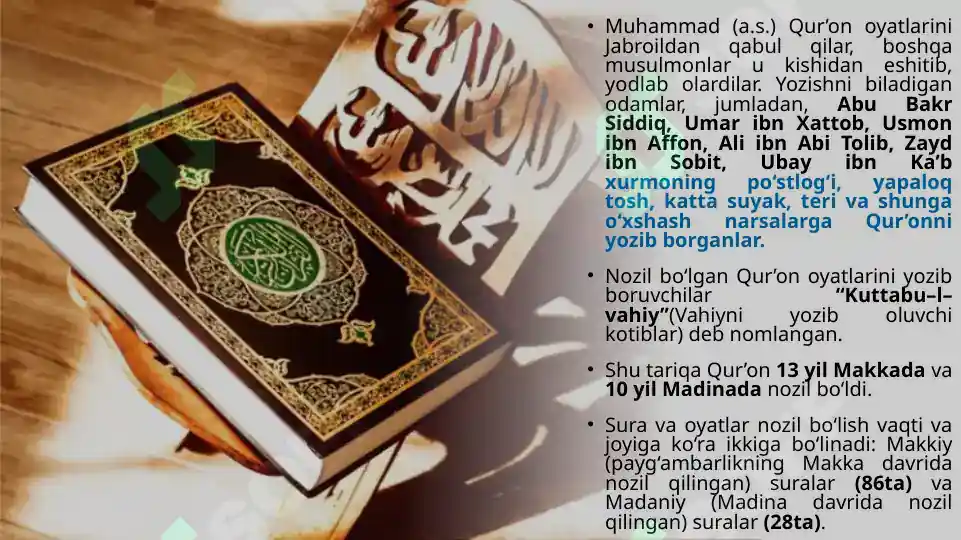 • Muhammad (a.s.) Qur’on oyatlarini
Jabroildan qabul qilar, boshqa
musulmonlar u kishidan eshitib,
yodlab olardilar. Yozishni biladigan
odamlar, jumladan, Abu Bakr
Siddiq, Umar ibn Xattob, Usmon
ibn Affon, Ali ibn Abi Tolib, Zayd
ibn Sobit, Ubay ibn Ka’b
xurmoning po‘stlog‘i, yapaloq
tosh, katta suyak, teri va shunga
o‘xshash narsalarga Qur’onni
yozib borganlar.
• Nozil bo‘lgan Qur’on oyatlarini yozib
boruvchilar “Kuttabu–l–
vahiy”(Vahiyni yozib oluvchi
kotiblar) deb nomlangan.
• Shu tariqa Qur’on 13 yil Makkada va
10 yil Madinada nozil bo‘ldi.
• Sura va oyatlar nozil bo‘lish vaqti va
joyiga ko‘ra ikkiga bo‘linadi: Makkiy
(payg‘ambarlikning Makka davrida
nozil qilingan) suralar (86ta) va
Madaniy (Madina davrida nozil
qilingan) suralar (28ta).